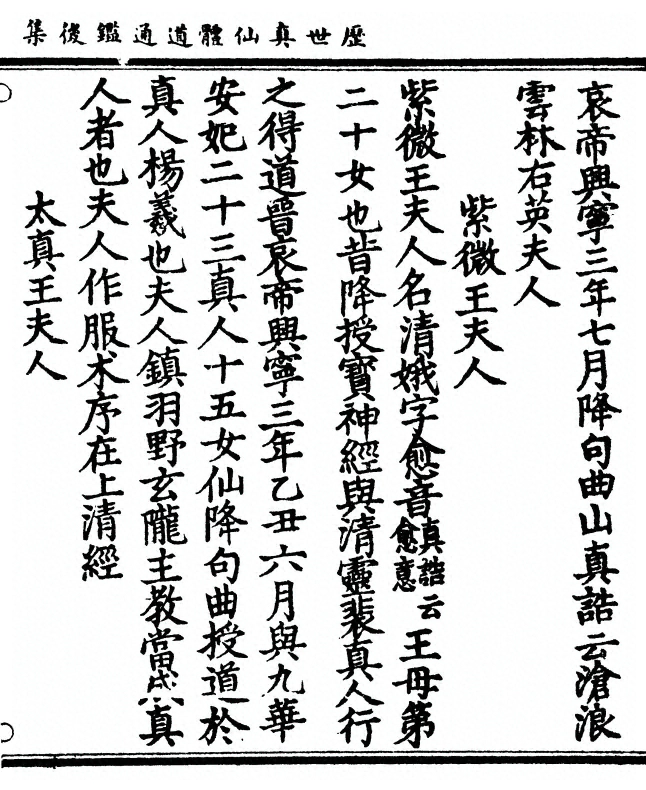 歷世真仙體道通鑑後集
哀帝興寧三年七月降句曲山真誥云滄浪
雲林右英夫人
紫微王夫人
紫微王夫人名清娥字愈音真誥云愈意王母第
二十女也昔降授寶神經與清靈裴真人行
之得道晉哀帝興寧三年乙丑六月與九華
安妃二十三真人十五女仙降句曲授道於
真人楊羲也夫人鎮羽野玄隴主教當成真
人者也夫人作服朮序在上清經
太真王夫人